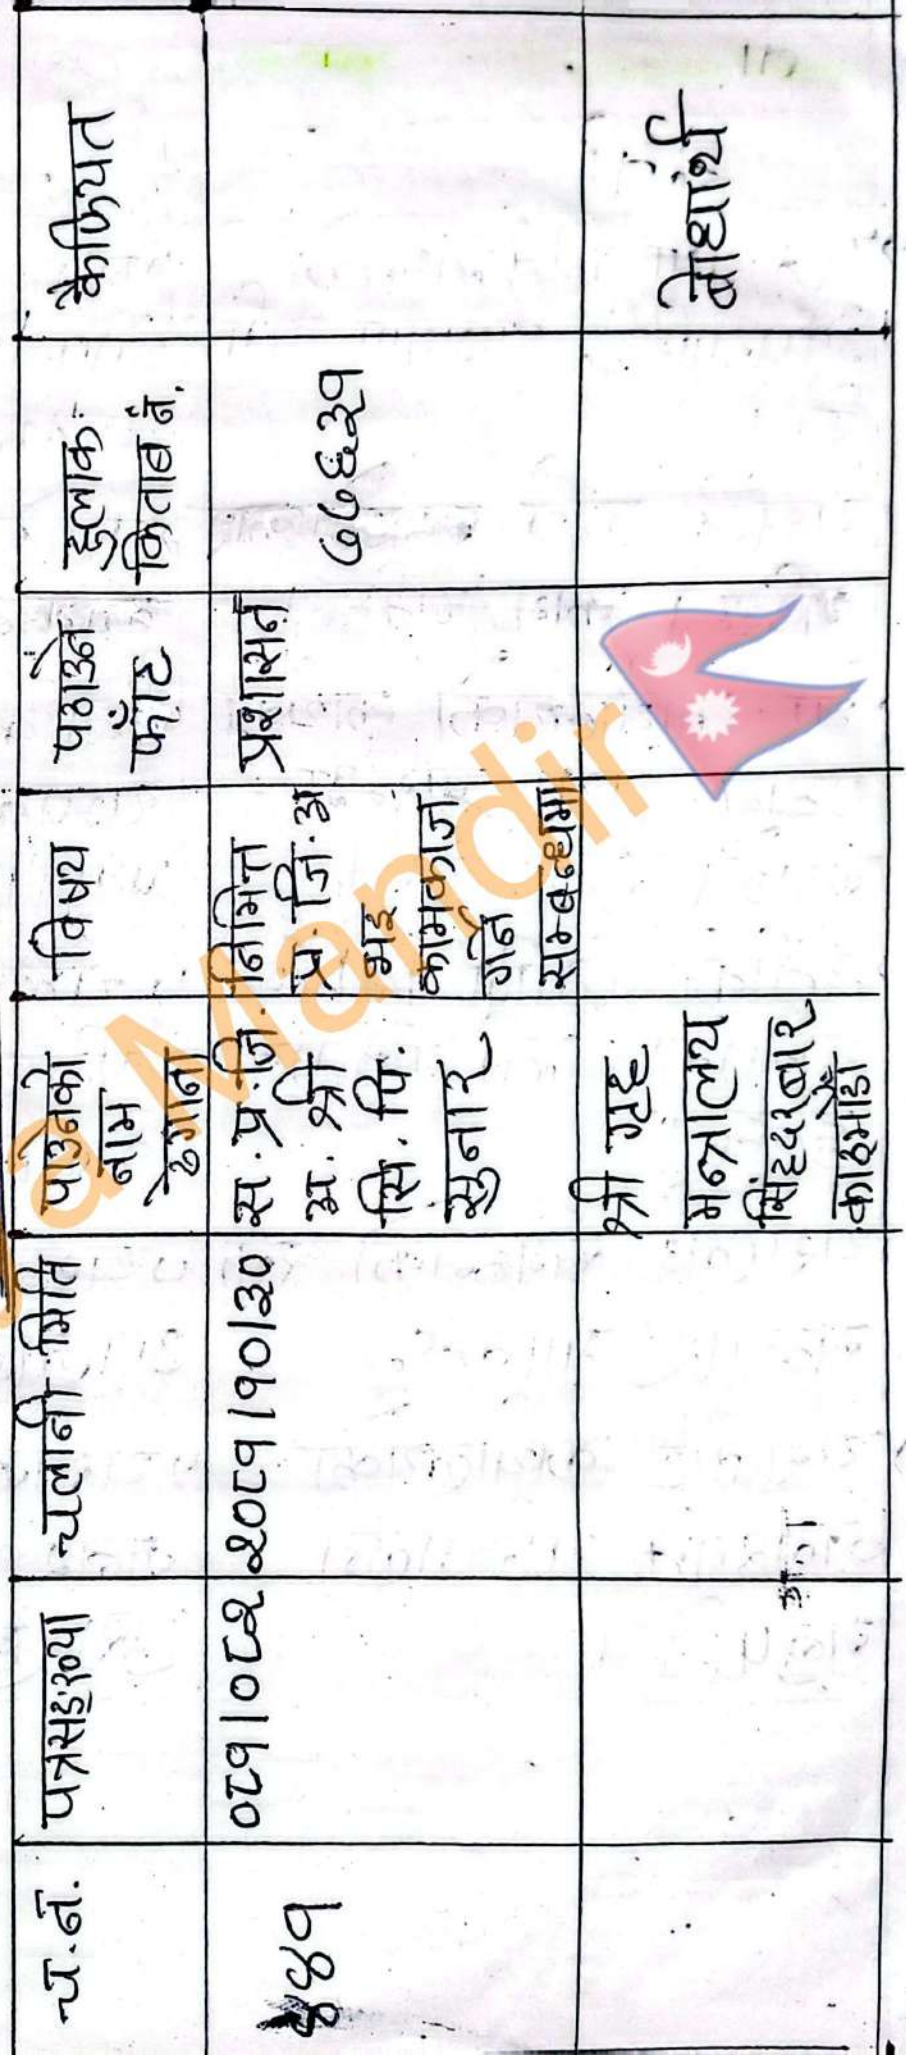 च.नं.
पत्रसङ्ख्या
चलानी मिति
पाउनेको
नाम
ठेगाना
विषय
पठाउने
फाँट
हुलाक
किताब नं.
कैफियत
४४१
०८१।०८२
२०८१।१०।३०
स.प्र.जि.
अ. श्री
सि. पि.
सुनार
निमित्त
प्र. जि. अ
भइ
कामकाज
गर्ने
सम्बन्धमा
प्रशासन
७७६३१
श्री गृह
मन्त्रालय
सिंहदरबार
काठमाडौं
बोधार्थ
a Mandir